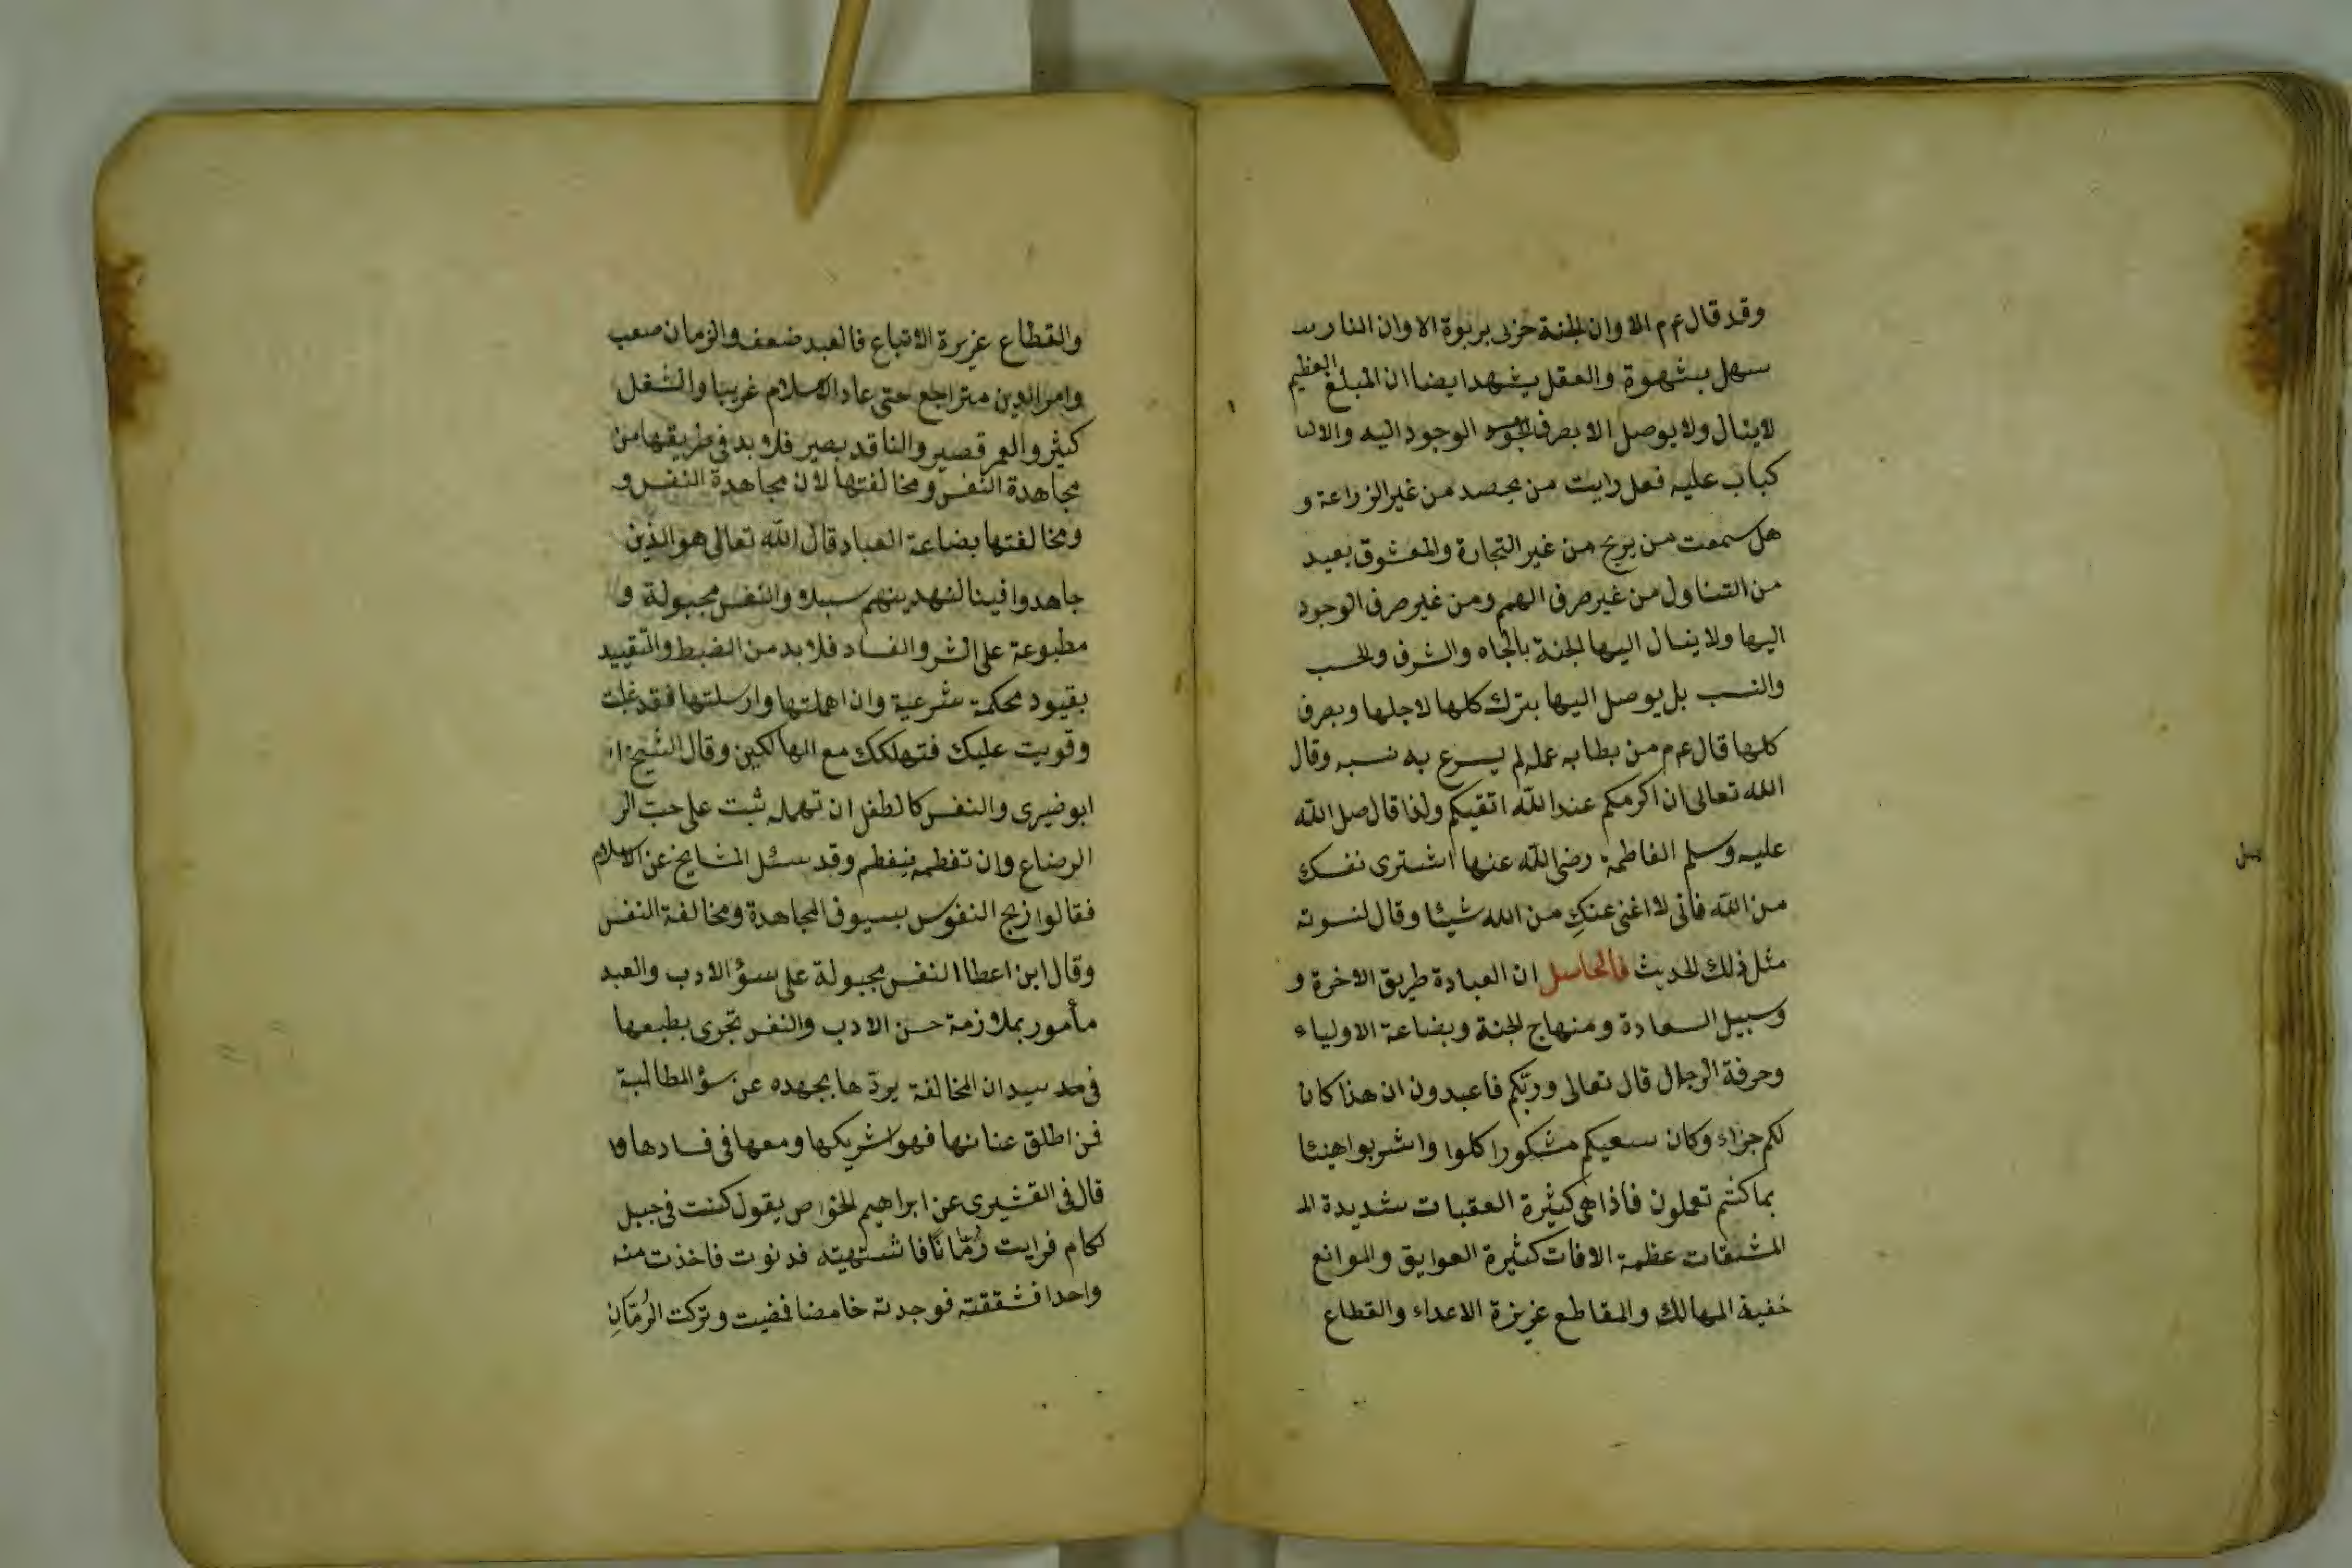 وقد قال عم م الا وان الجنة حزن بربوة الا وان النار
سهل بشهوة والعقل يشهد ايضا ان المبلغ العظيم
لا ينال ولا يوصل الا بصرف الوجود اليه والا
كباب عليه فعل رايت من يحصد من غير الزراعة و
هل سمعت من يربح من غير التجارة والمعشوق بعيد
من التناول من غير صرف الهم ومن غير صرف الوجود
اليها ولا ينال اليها الجنة بالجاه والشرف والحسب
والنسب بل يوصل اليها بترك كلها لاجلها وبصرف
كلها قال عم م من بطا به عمله لم يسرع به نسبه وقال
الله تعالى ان اكرمكم عند الله اتقيكم ولذا قال صل الله
عليه وسلم الفاطمة رضى الله عنها اشترى نفسك
من الله فانى لا اغنى عنكِ من الله شيئا وقال لنسوته
مثل ذلك الحديث فالحاصل ان العبادة طريق الاخرة و
وسبيل السعادة ومنهاج الجنة وبضاعة الاولياء
وحرفة الرجال قال تعالى وربّكم فاعبدون ان هذا كان
لكم جزاء وكان سعيكم مشكورا كلوا واشربوا هنيئا
بما كنتم تعملون فاذا هى كثيرة العقبات شديدة الم
المشقات عظمة الافات كثيرة العوايق والموانع
خفية المهالك والمقاطع عزيزة الاعداء والقطاع
والقطاع عزيزة الاتباع فالعبد ضعف والزمان صعب
وامر الدين متراجع حتى عاد الاسلام غريبا والشغل
كثير والعمر قصير والناقد بصير فلا بد فى طريقها من
مجاهدة النفس ومخالفتها لان مجاهدة النفس و
ومخالفتها بضاعة العباد قال الله تعالى هو الذين
جاهدوا فينا لنهدينهم سبلا والنفس مجبولة و
مطبوعة على الشر والفساد فلا بد من الضبط والتّقييد
بقيود محكمة شرعية وان اهملتها وارسلتها فقد غلبت
وقويت عليك فتهلكك مع الهالكين وقال الشيخ
ابو ضيرى والنفس كالطفل ان تهمله شبت على حبّ الر
الرضاع وان تفطمه ينفطم وقد سئل المشايخ عن الاسلام
فقالوا زبج النفوس بسيوف المجاهدة ومخالفة النفس
وقال ابن اعطا النفس مجبولة على سؤ الادب والعبد
مأمور بملازمة حسن الادب والنفس تجرى بطبعها
فى ميدان المخالفة يردّها بجهده عن سؤ المطالبة
فمن اطلق عنانها فهو شريكها ومعها فى فسادها
قال فى القشيرى عن ابراهيم الخواص يقول كنت فى جبل
لكام فرايت رُمّانًا فاشتهيته فدنوت فاخذت منه
واحدا فشققته فوجدته خامضا فمضيت وتركت الرُمّان